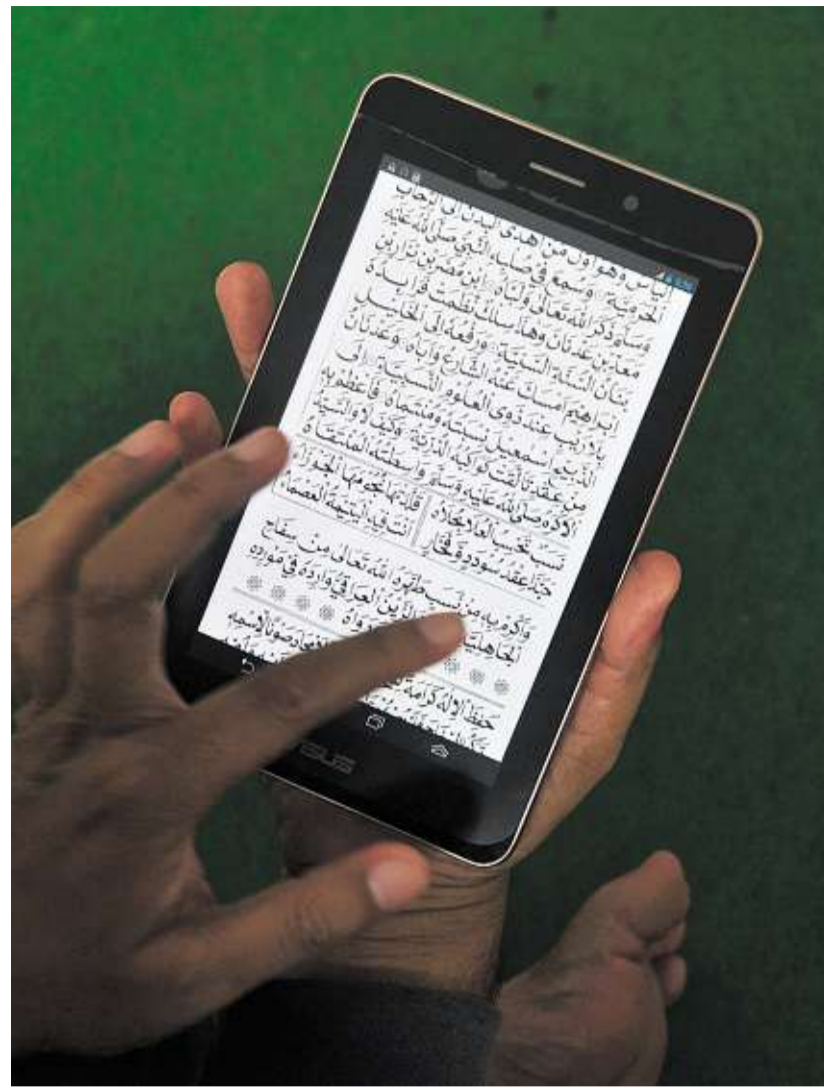 اِلْيَاسَ وَهُوَ اَوَّلُ مَنْ اَهْدَى الْبُدْنَ اِلَى الرِّحَابِ
الْحَرَمِيَّةِ وَسُمِعَ فِيْ صُلْبِهِ النَّبِيُّ صَلَّى اللّٰهُ عَلَيْهِ
وَسَلَّمَ ذَكَرَ اللّٰهَ تَعَالَى وَلَبَّاهُ اِبْنِ مُضَرَ بْنِ نِزَارِ بْنِ
مَعَدِّ بْنِ عَدْنَانَ وَهٰذَا سِلْكٌ نَظَّمَتْ فَرَائِدَهُ
بَنَانُ السُّنَّةِ السَّنِيَّةِ وَرَفْعُهُ اِلَى الْخَلِيْلِ
اِبْرَاهِيْمَ اَمْسَكَ عَنْهُ الشَّارِعُ وَاَبَاهُ وَعَدْنَانُ
بِلَارَيْبٍ عِنْدَ ذَوِى الْعُلُوْمِ النَّسَبِيَّةِ اِلَى
الذَّبِيْحِ اِسْمٰعِيْلَ نِسْبَتُهُ وَمُنْتَمَاهُ فَاَعْظِمْ بِهِ
مِنْ عِقْدٍ تَأَلَّقَتْ كَوَاكِبُهُ الدُّرِّيَّةُ وَكَيْفَ لَا وَالسَّيِّدُ
الْاَكْرَمُ صَلَّى اللّٰهُ عَلَيْهِ وَسَلَّمَ وَاسِطَتُهُ الْمُنْتَقَاةُ
نَسَبٌ تَحْسِبُ الْعُلَا بِحُلَاهُ قَلَّدَتْهَا نُجُوْمَهَا الْجَوْزَاءُ
حَبَّذَا عِقْدُ سُوْدَدٍ وَفَخَارٍ اَنْتَ فِيْهِ الْيَتِيْمَةُ الْعَصْمَاءُ
وَاَكْرِمْ بِهِ مِنْ نَسَبٍ طَهَّرَهُ اللّٰهُ تَعَالَى مِنْ سِفَاحِ
الْجَاهِلِيَّةِ الزَّيْنُ الْعِرَاقِيُّ وَارِدَهُ فِيْ مَوْرِدِهِ
حَفِظَ الْاِلٰهُ كَرَامَةً صَوْنًا لِاسْمِهِ
ASUS